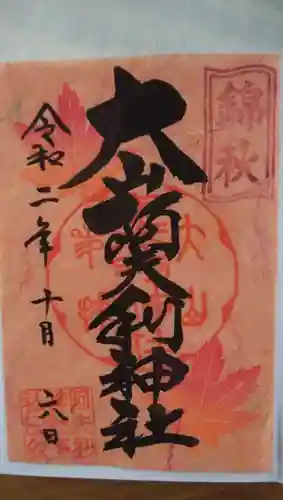 錦秋
大山阿夫利神社
令和二年十月六日